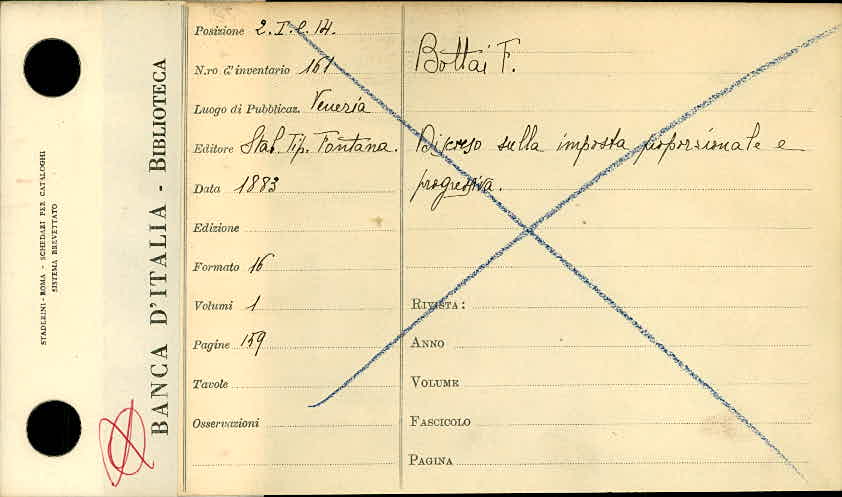 STADERINI-ROMA - SCHEDARI PER CATALOGHI
SISTEMA BREVETTATO
BANCA D'ITALIA - BIBLIOTECA
Posizione 2. I. C. 14.
N.ro d'inventario 161
Luogo di Pubblicaz. Venezia
Editore Stab. Tip. Fontana.
Data 1883
Edizione
Formato 16
Volumi 1
Pagine 159
Tavole
Osservazioni
Bottai F.
Discorso sulla imposta proporzionale e
progressiva.
RIVISTA:
ANNO
VOLUME
FASCICOLO
PAGINA